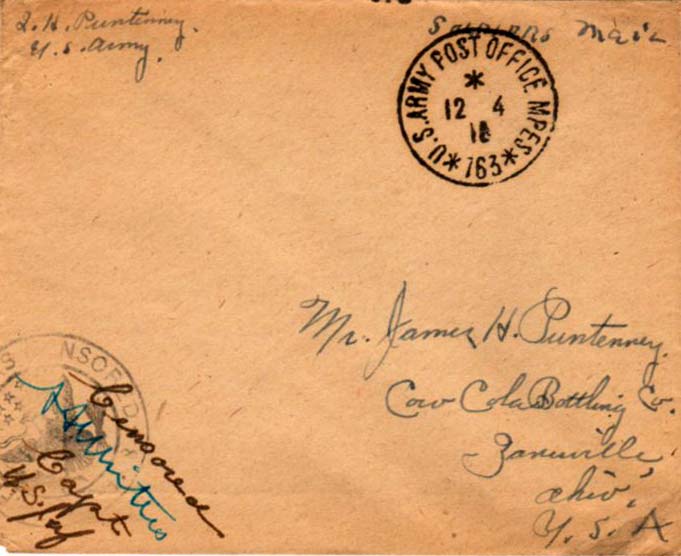 L. H. Puntenney.
U. S. Army.
Soldiers Mail
U.S. ARMY POST OFFICE MPES
12 4
18
*763*
Mr. James H. Puntenney.
Cow Cola Bottling Co.
Zanesville,
Ohio,
U. S. A
NSORED
Censored
Capt
U.S.